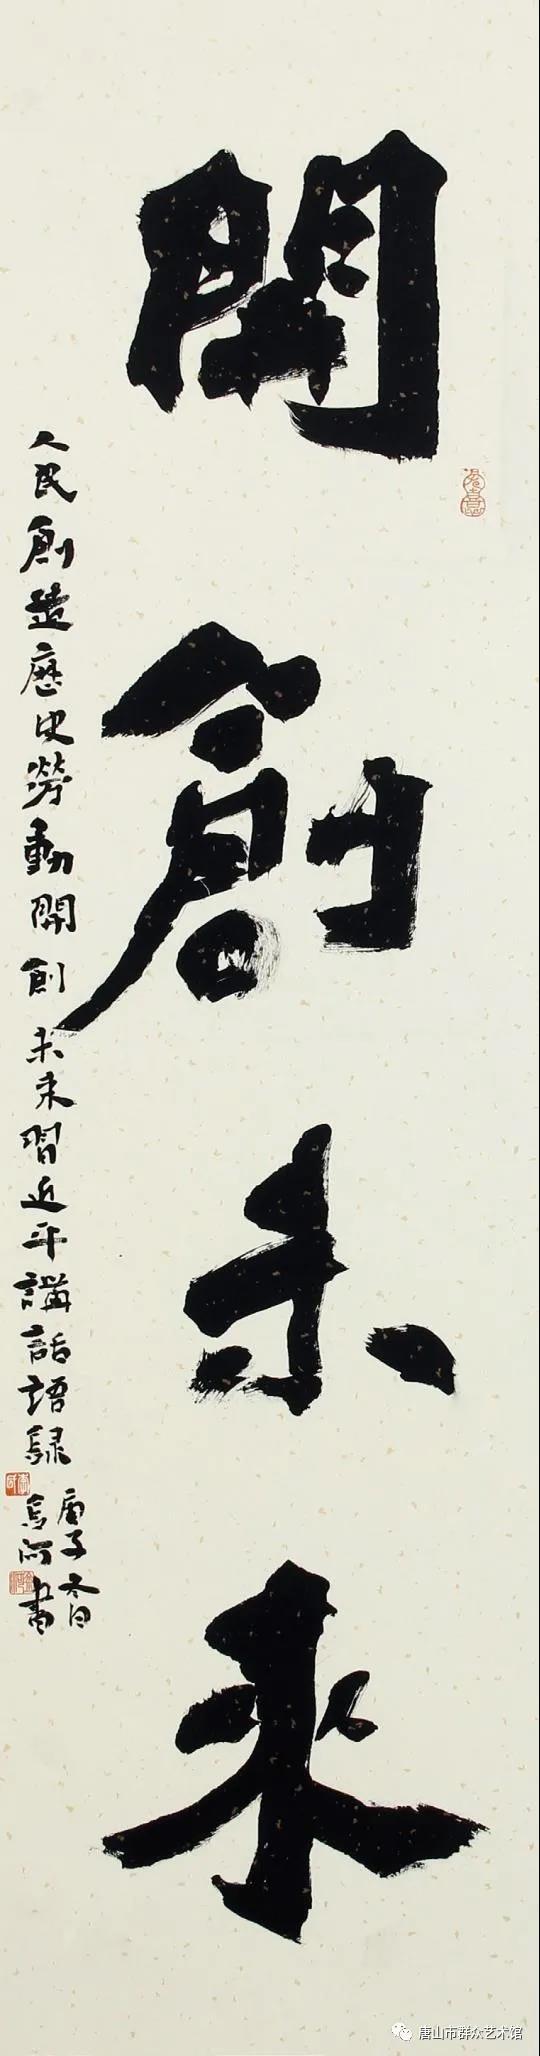 開創未来
人民創造歷史勞動開創未来習近平講話語録
庚子冬日
唐山市群众艺术馆